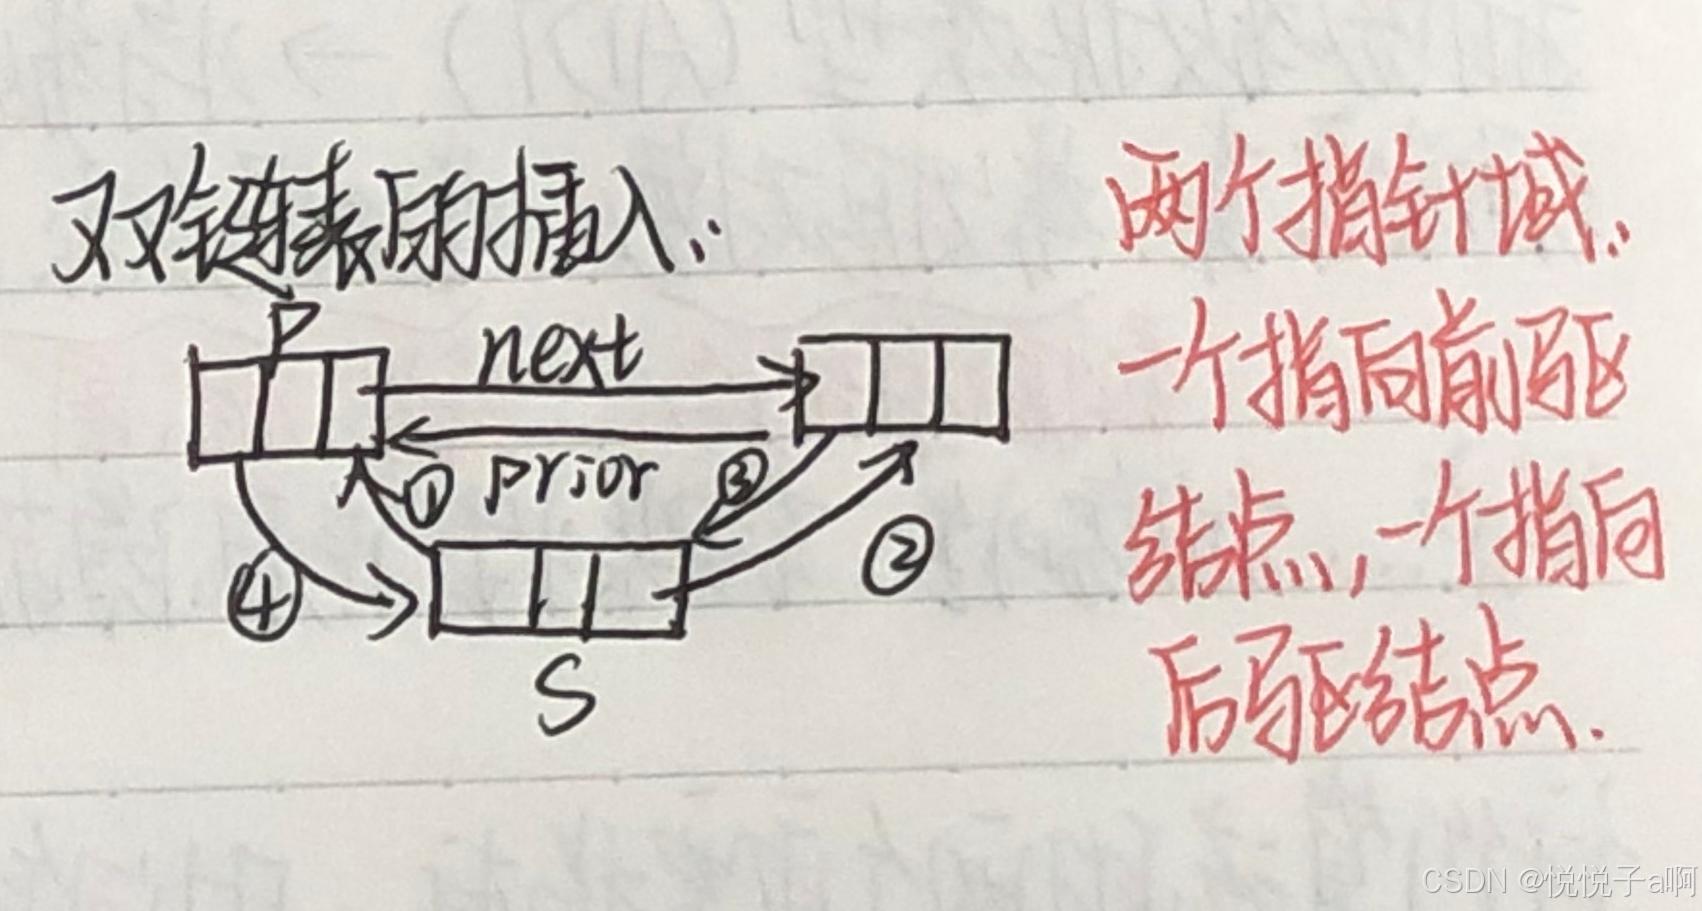 双链表的插入:
P
next
prior
①
③
②
④
S
两个指针域:
一个指向前驱
结点,一个指向
后驱结点.
CSDN @悦悦子a啊